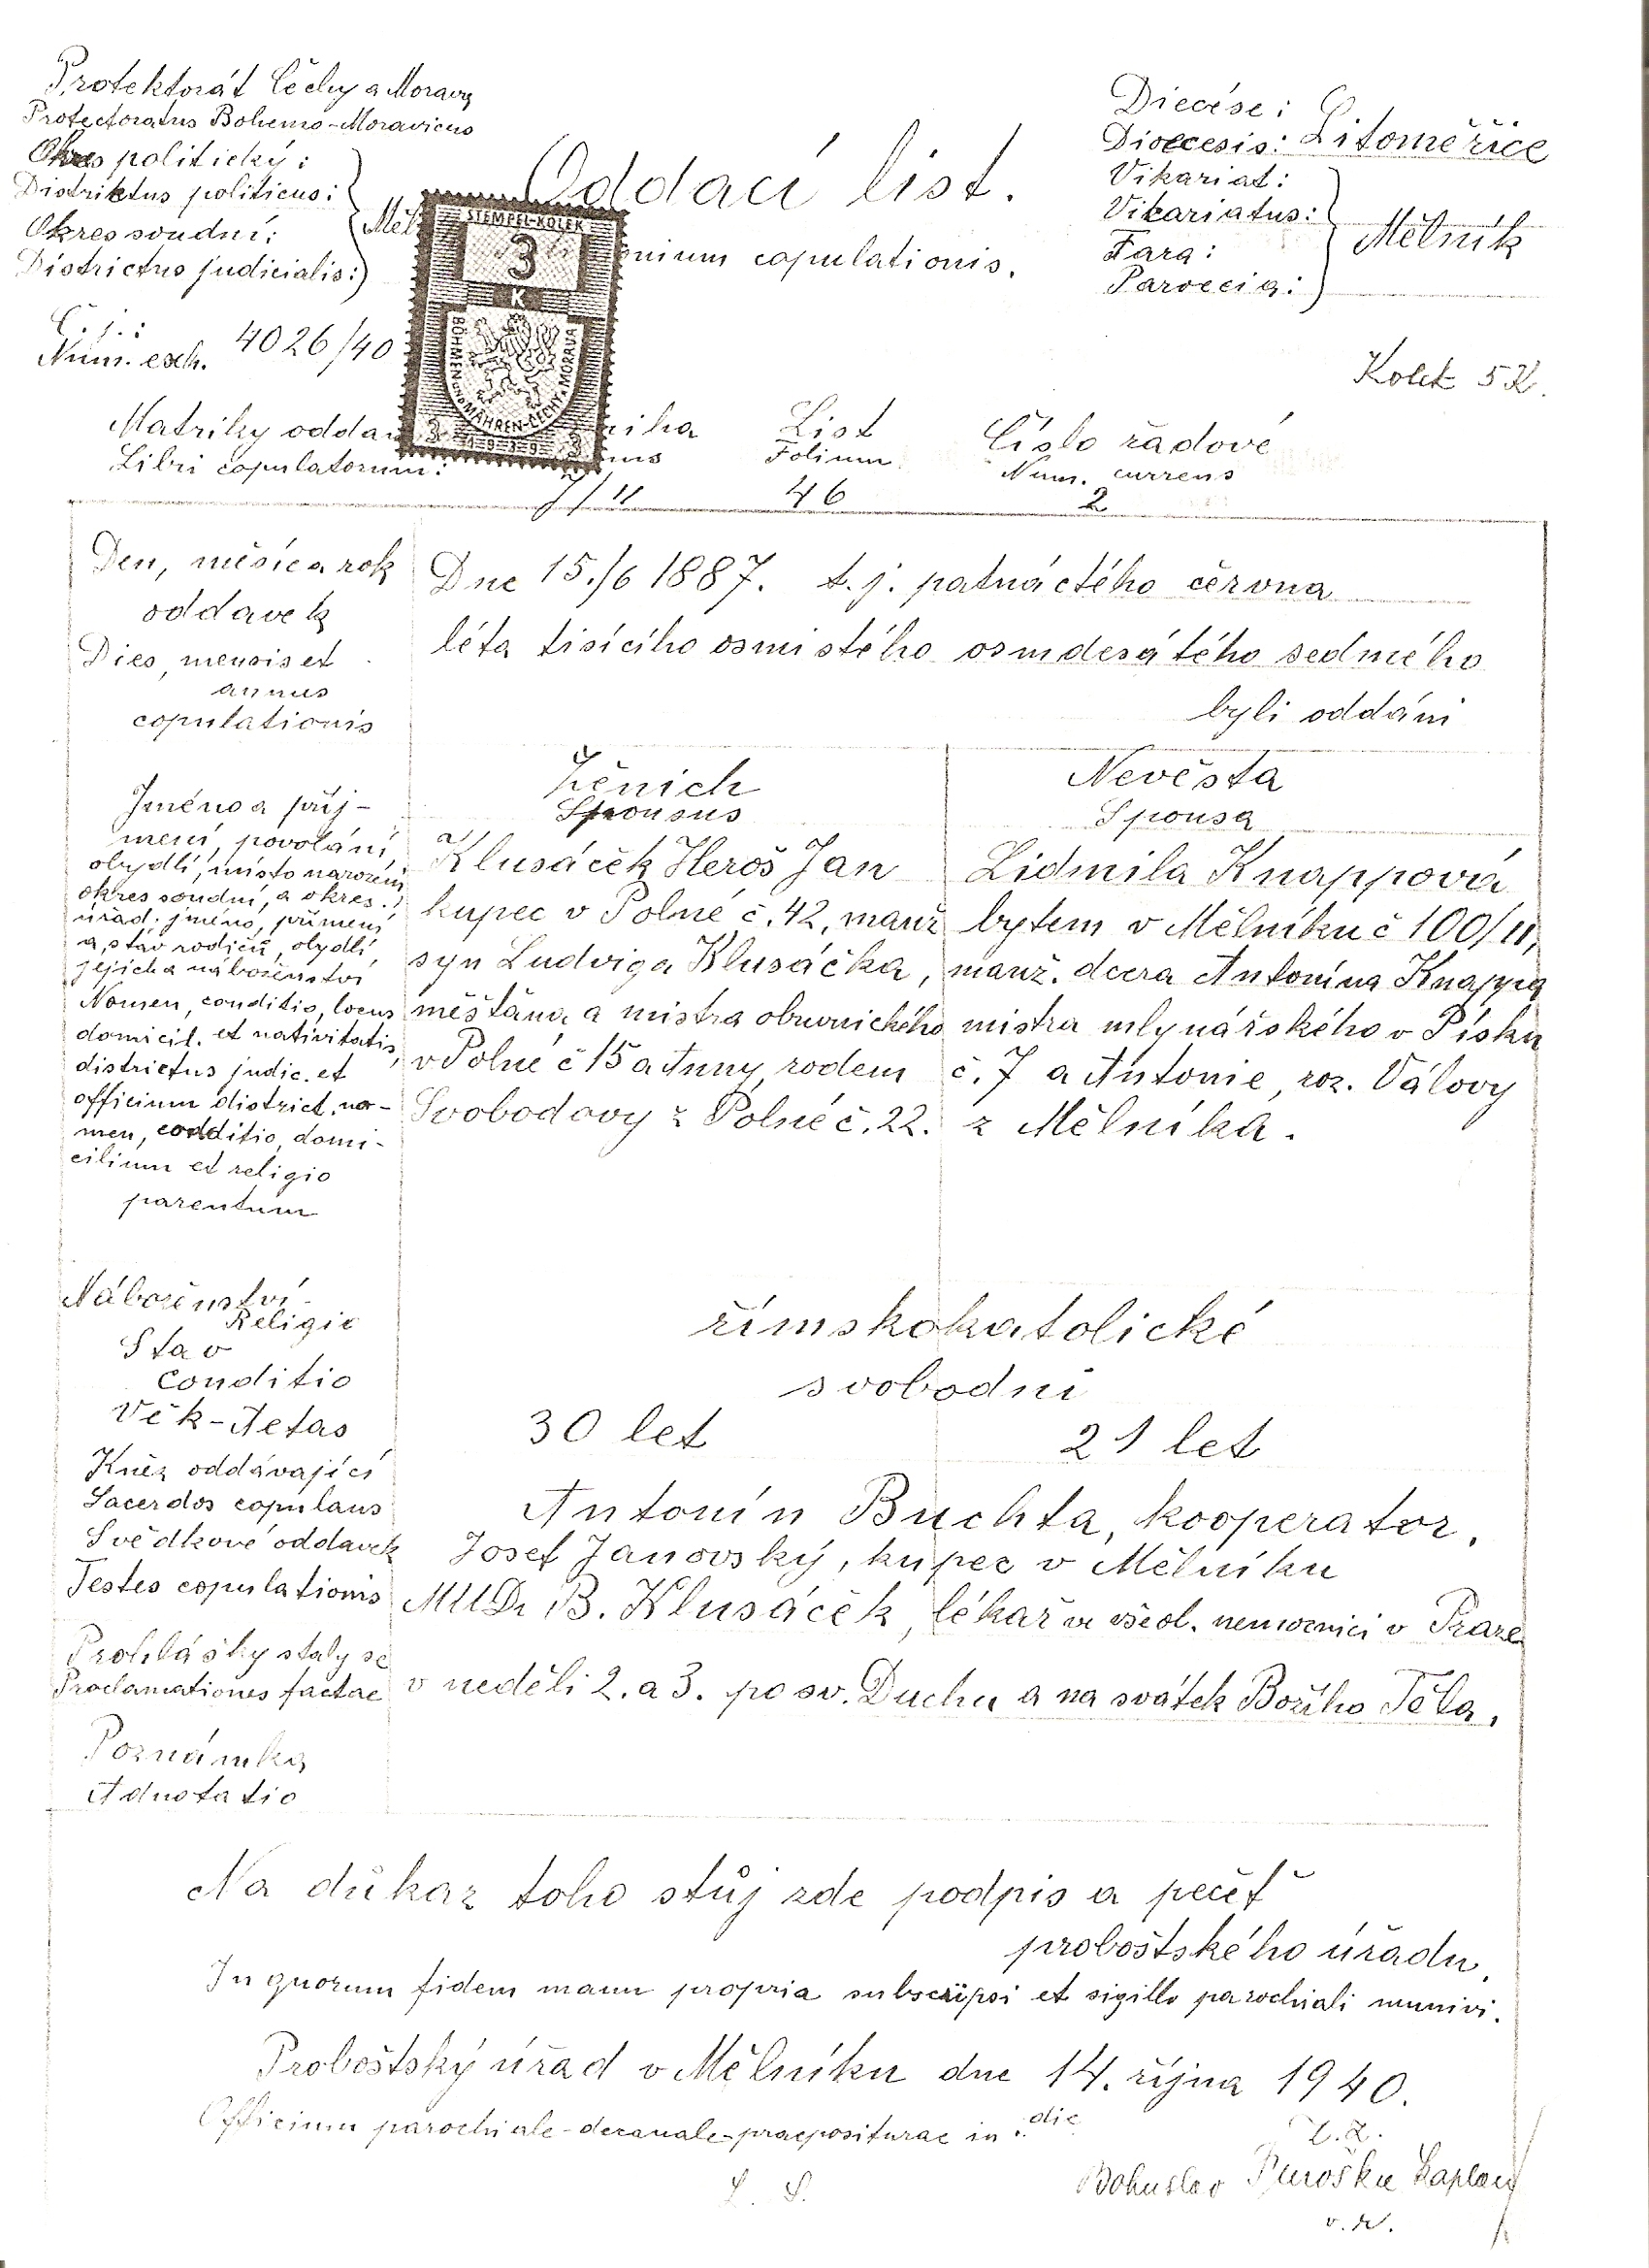 Protektorát Čechy a Morava
Protectoratus Bohemo-Moravicus
Okres politický:
Distriktus politicus:
Okres soudní:
Districtus judicialis:
Měl
Č. j.:
Num. exh. 4026/40
Oddací list.
onium copulationis.
STEMPEL-KOLEK
3
K
BÖHMEN UND MÄHREN-ČECHY A MORAVA
3 1939 3
Diecése:
Dioecesis: Litoměřice
Vikariat:
Vicariatus:
Fara:
Paroecia:
Mělník
Kolek 5 K.
Matriky odda niha List Číslo řadové
Libri copulatorum: mus Folium Num. currens
II 46 2
Den, měsíc a rok
oddavek
Dies, mensis et
annus
copulationis
Dne 15./6 1887. t.j. patnáctého června
léta tisícího osmistého osmdesátého sedmého
byli oddáni
Jméno a příj-
mení, povolání,
obydlí, místo narození,
okres soudní, a okres.
úřad; jméno, příjmení
a stav rodičů, obydlí,
jejich a náboženství
Nomen, conditio, locus
domicil. et nativitatis,
districtus judic. et
officium district. no-
men, conditio, domi-
cilium et religio
parentum
Ženich
Sponsus
Klusáček Heroš Jan
kupec v Polné č. 42, manž
syn Ludviga Klusáčka,
měšťana a mistra obuvnického
v Polné č 15 a Anny, rodem
Svobodovy z Polné č. 22.
Nevěsta
Spousa
Lidmila Knappová
bytem v Mělníku č 100/II,
manž. dcera Antonína Knappa
mistra mlynářského v Písku
č. 7 a Antonie, roz. Válovy
z Mělníka.
Náboženství
Religio
římskokatolické
Stav
Conditio
svobodni
Věk-Aetas
30 let 21 let
Kněz oddávající
Sacerdos copulans
Antonín Buchta, kooperator.
Svědkové oddavek
Testes copulationis
Josef Janovský, kupec v Mělníku
MUDr B. Klusáček, lékař ve všeob. nemocnici v Praze
Prohlášky staly se
Proclamationes factae
v neděli 2. a 3. po sv. Duchu a na svátek Božího Těla.
Poznámka
Adnotatio
Na důkaz toho stůj zde podpis a pečeť
proboštského úřadu.
In quorum fidem manu propria subscripsi et sigillo parochiali munivi.
Proboštský úřad v Mělníku dne 14. října 1940.
Officium parochiale-decanale-praepositurae in die
L. S.
Bohuslav kaplan
v. r.